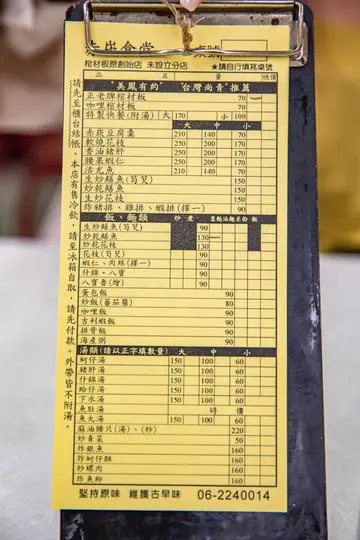 赤崁食堂 桌號
棺材板原創始店 未設立分店 ★請自行填寫桌號
品名 量 總價
"美鳳有約" "台灣尚青"推薦
正老牌棺材板 70
咖哩棺材板 70
特製快餐(附湯) 大 170 小 100
大 中 小
赤崁豆腐羹 210 140 70
軟燒花枝 250 210 70
香油豬肝 250 210 70
腰果蝦仁 250 210 70
活尤魚 250 140 70
生炒鱔魚(芶芡) 150
生炒鱔魚 150
炒花枝 150
炸豬排、雞排、蝦排(擇一) 150
飯、麵類 炒 意麵 油麵 米粉 飯
生炒鱔魚(芶芡) 90
炒乾鱔魚 130
炒乾花枝 130
花枝(芶芡) 90
蝦仁、肉絲(擇一) 90
什錦、八寶 90
八寶魯(燴) 90
蛋包飯 90
炒飯(蕃茄醬) 80
咖哩飯 90
吉利蝦飯 90
排骨飯 90
海產粥 90
湯類(請以正字填數量) 大 中 小
蚵仔湯 150 100 60
豬肝湯 150 100 60
什錦湯 150 100 60
蛤仔湯 150 100 60
下水湯 150 100 60
魚肚湯 時 價
魚丸湯 150 100 60
麻油腰只(湯)、(炒) 220
炒青菜 50
炸銀魚 160
炸蚵仔酥 160
炒螺肉 160
炸魚柳 160
堅持原味 維護古早味 06-2240014
請先至櫃台結帳。本店有售冷飲,請至冰箱自取,請先付款。外帶皆不附湯。